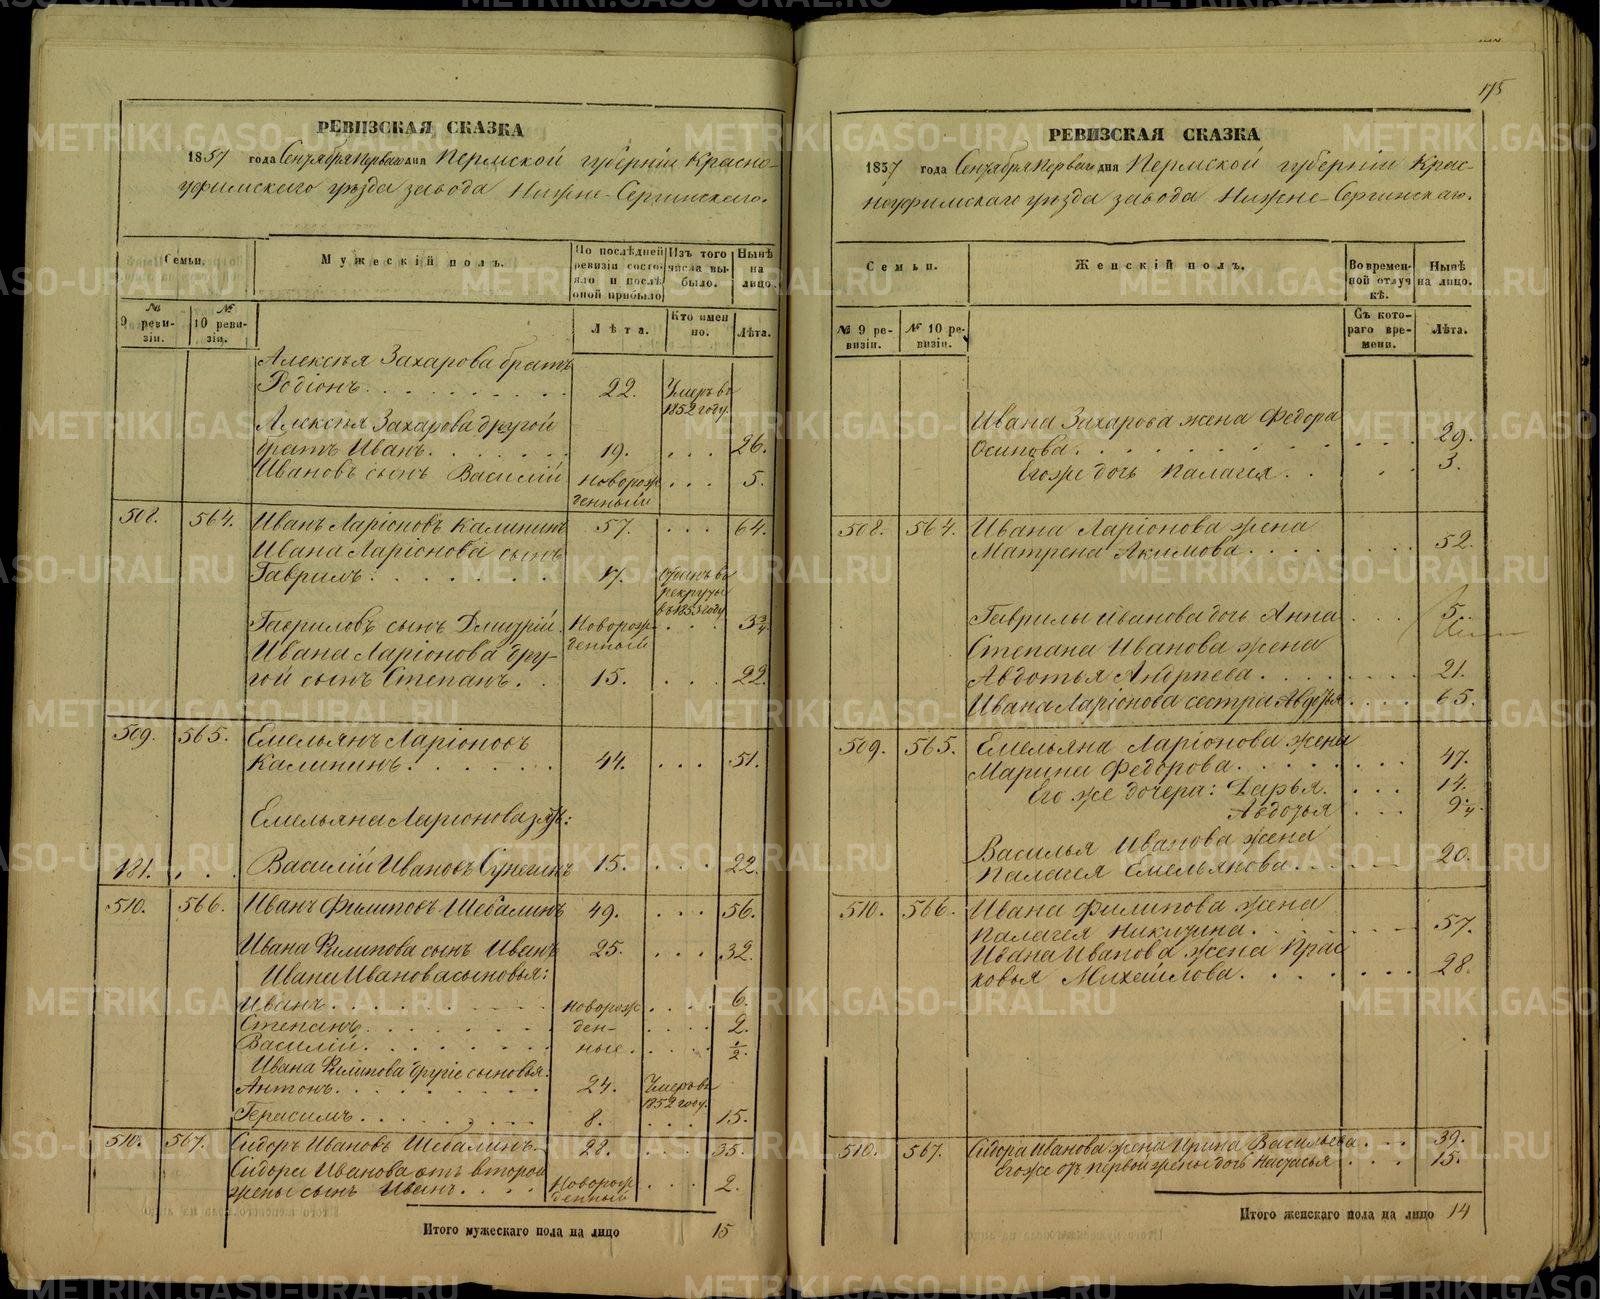 175
РЕВИЗСКАЯ СКАЗКА
1857 года Сентября Перваго дня Пермской губернiи Красно-
уфимскаго уѣзда завода Нижне-Сергинскаго.
Семьи.
Мужескiй полъ.
По послѣдней ревизiи состояло и послѣ оной прибыло
Изъ того числа выбыло.
Нынѣ на лицо.
№ 9 ревизiи.
№ 10 ревизiи.
Лѣта.
Кто именно.
Лѣта.
Алексѣя Захарова братъ
Родiонъ. 22. Умеръ въ 1852 году.
Алексѣя Захарова другой
братъ Иванъ. 19. 26.
Ивановъ сынъ Василiй новорожденный 5.
508. 564. Иванъ Ларiоновъ Калининъ 57. 64.
Ивана Ларiонова сынъ
Гаврилъ. 17. Отданъ въ рекруты въ 1853 году
Гавриловъ сынъ Дмитрiй Новорожденный 3 3/4
Ивана Ларiонова дру-
гой сынъ Степанъ. 15. 22.
509. 565. Емельянъ Ларiоновъ
Калининъ. 44. 51.
Емельяна Ларiонова зять:
181. Василiй Ивановъ 15. 22.
510. 566. Иванъ Филиповъ Шебалинъ 49. 56.
Ивана Филипова сынъ Иванъ 25. 32.
Ивана Иванова сыновья:
Иванъ. новорож 6.
Степанъ. ден- 2.
Василiй. ные. 1/2.
Ивана Филипова другiе сыновья:
Антонъ. 24. Умеръ въ 1852 году.
Герасимъ. 8. 15.
510. 567. Сидоръ Ивановъ Шебалинъ 28. 35.
Сидора Иванова отъ второй
жены сынъ Иванъ. Новорожденный 2.
Итого мужескаго пола на лицо 15
РЕВИЗСКАЯ СКАЗКА
1857 года Сентября Перваго дня Пермской губернiи Крас-
ноуфимскаго уѣзда завода Нижне-Сергинскаго.
Семьи.
Женскiй полъ.
Во временной отлучкѣ.
Нынѣ на лицо.
№ 9 ревизiи.
№ 10 ревизiи.
Съ котораго времени.
Лѣта.
Ивана Захарова жена Федора
Осипова. 29.
Его же дочь Палагея. 3.
508. 564. Ивана Ларiонова жена
Матрена Акимова. 52.
Гаврилы Иванова дочь Анна 5.
Степана Иванова жена
Авдотья Андреева. 21.
Ивана Ларiонова сестра Авдотья 65.
509. 565. Емельяна Ларiонова жена
Марина Федорова. 47.
Его же дочери: Дарья. 14.
Авдотья 9 1/4.
Василья Иванова жена
Палагея Емельянова. 20.
510. 566. Ивана Филипова жена
Палагея Никитина. 57.
Ивана Иванова жена Прас-
ковья Михейлова. 28.
510. 567. Сидора Иванова жена Ирина Васильева. 39.
Его же отъ первой жены дочь Настасья 15.
Итого женскаго пола на лицо 14
METRIKI.GASO-URAL.RU